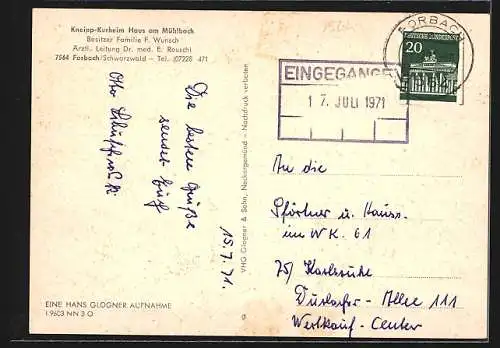 Kneipp-Kurheim Haus am Mühlbach
Besitzer Familie F. Wunsch
Ärztl. Leitung Dr. med. E. Rouschi
7564 Forbach/Schwarzwald – Tel. (07228) 471
Die besten Grüße
sendet Euch
Otto
15.7.71.
EINE HANS GLOGNER AUFNAHME
I 9603 NN 3 O
VHG Glogner & Sohn, Neckargemünd – Nachdruck verboten
FORBACH
20
DEUTSCHE BUNDESPOST
EINGEGANGEN
17. JULI 1971
An die
Pförtner u. Hauss.
im W K. 61
75 Karlsruhe
Durlacher-Allee 111
Wertkauf-Center